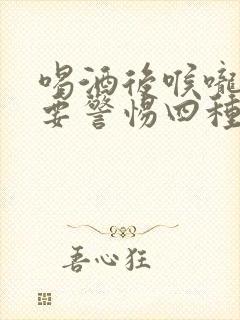 喝酒後喉嚨
要警惕四種
善心狂